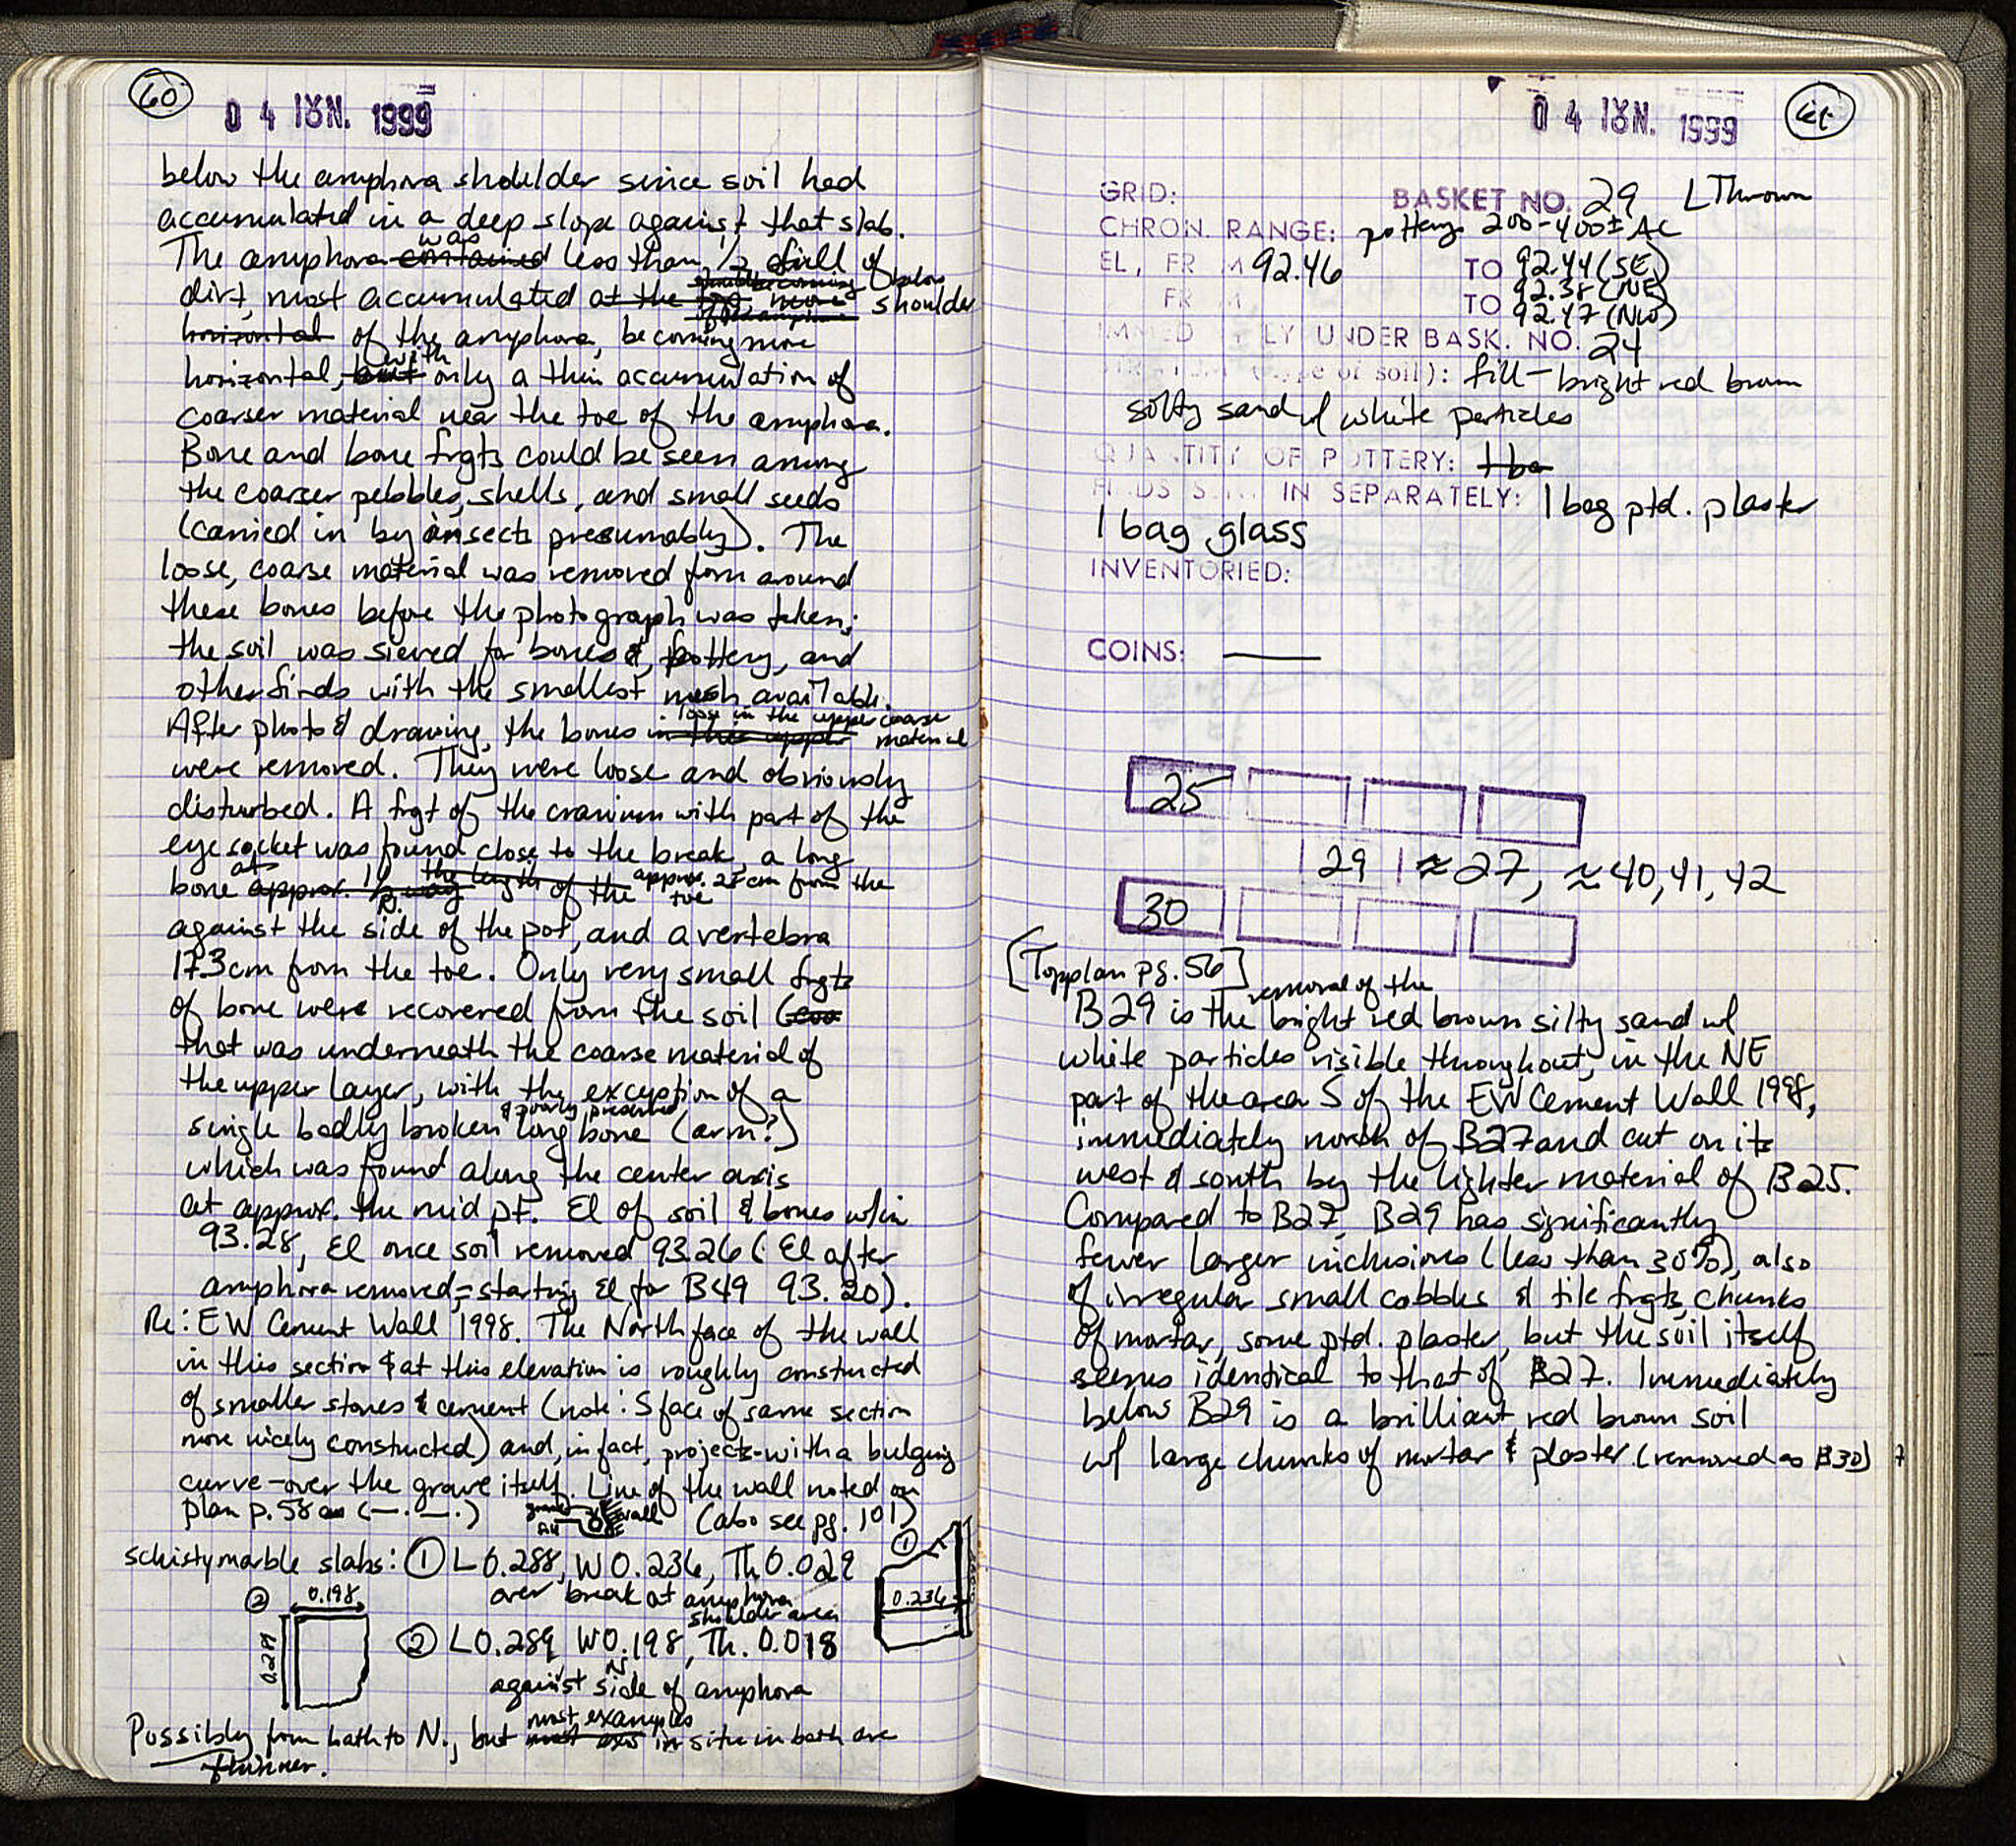 60
04 ΙΟΥΝ. 1999
below the amphora shoulder since soil had
accumulated in a deep slope against that slab.
The amphora contained was less than 1/2 full of
dirt, most accumulated at the below shoulder
horizontal of the amphora, becoming more
horizontal, but with only a thin accumulation of
coarser material near the toe of the amphora.
Bone and bone frgts could be seen among
the coarser pebbles, shells, and small seeds
(carried in by insects presumably). The
loose, coarse material was removed from around
these bones before the photograph was taken;
the soil was sieved for bones, pottery, and
other finds with the smallest mesh available.
After photo & drawing, the bones in this upper loose in the upper coarse material
were removed. They were loose and obviously
disturbed. A frgt of the cranium with part of the
eye socket was found close to the break, a long
bone approx. 1/2 way at the length of the approx. 25cm from the toe
against the N. side of the pot, and a vertebra
17.3cm from the toe. Only very small frgts
of bone were recovered from the soil
that was underneath the coarse material of
the upper layer, with the exception of a
single badly broken & poorly preserved long bone (arm?)
which was found along the center axis
at approx. the mid pt. El of soil & bones w/in
93.28, El once soil removed 93.26 (El after
amphora removed, = starting El for B49 93.20).
Re: EW Cement Wall 1998. The North face of the wall
in this section & at this elevation is roughly constructed
of smaller stones & cement (note: S face of same section
more nicely constructed) and, in fact, projects - with a bulging
curve - over the grave itself. Line of the wall noted on
plan p. 58 as (—.—.) grave wall (also see pg. 101)
schisty marble slabs: ① L 0.288, W 0.236, Th 0.029
over break at amphora
shoulder area
① 0.236
② 0.198
0.289
② L 0.289, W 0.198, Th. 0.018
against N side of amphora
Possibly from bath to N., but most exs most examples in situ in bath are
thinner.
04 ΙΟΥΝ. 1999
61
GRID: BASKET NO. 29 L Thrown
CHRON. RANGE: pottery 200-400± AC
EL, FR M 92.46 TO 92.44 (SE)
92.38 (NE)
FR M, TO 92.47 (NW)
IMMED LY UNDER BASK. NO. 24
(type of soil): fill - bright red brown
silty sand w/ white particles
QUANTITY OF POTTERY: 1 ba
FINDS IN SEPARATELY: 1 bag ptd. plaster
1 bag glass
INVENTORIED:
COINS: —
25
29 ≈27, ≈40,41,42
30
[Topplan pg. 56]
B29 is the removal of the bright red brown silty sand w/
white particles visible throughout, in the NE
part of the area S of the EW Cement Wall 1998,
immediately north of B27 and cut on its
west & south by the lighter material of B25.
Compared to B27, B29 has significantly
fewer larger inclusions (less than 30%), also
of irregular small cobbles & tile frgts, chunks
of mortar, some ptd. plaster, but the soil itself
seems identical to that of B27. Immediately
below B29 is a brilliant red brown soil
w/ large chunks of mortar & plaster (removed as B30)